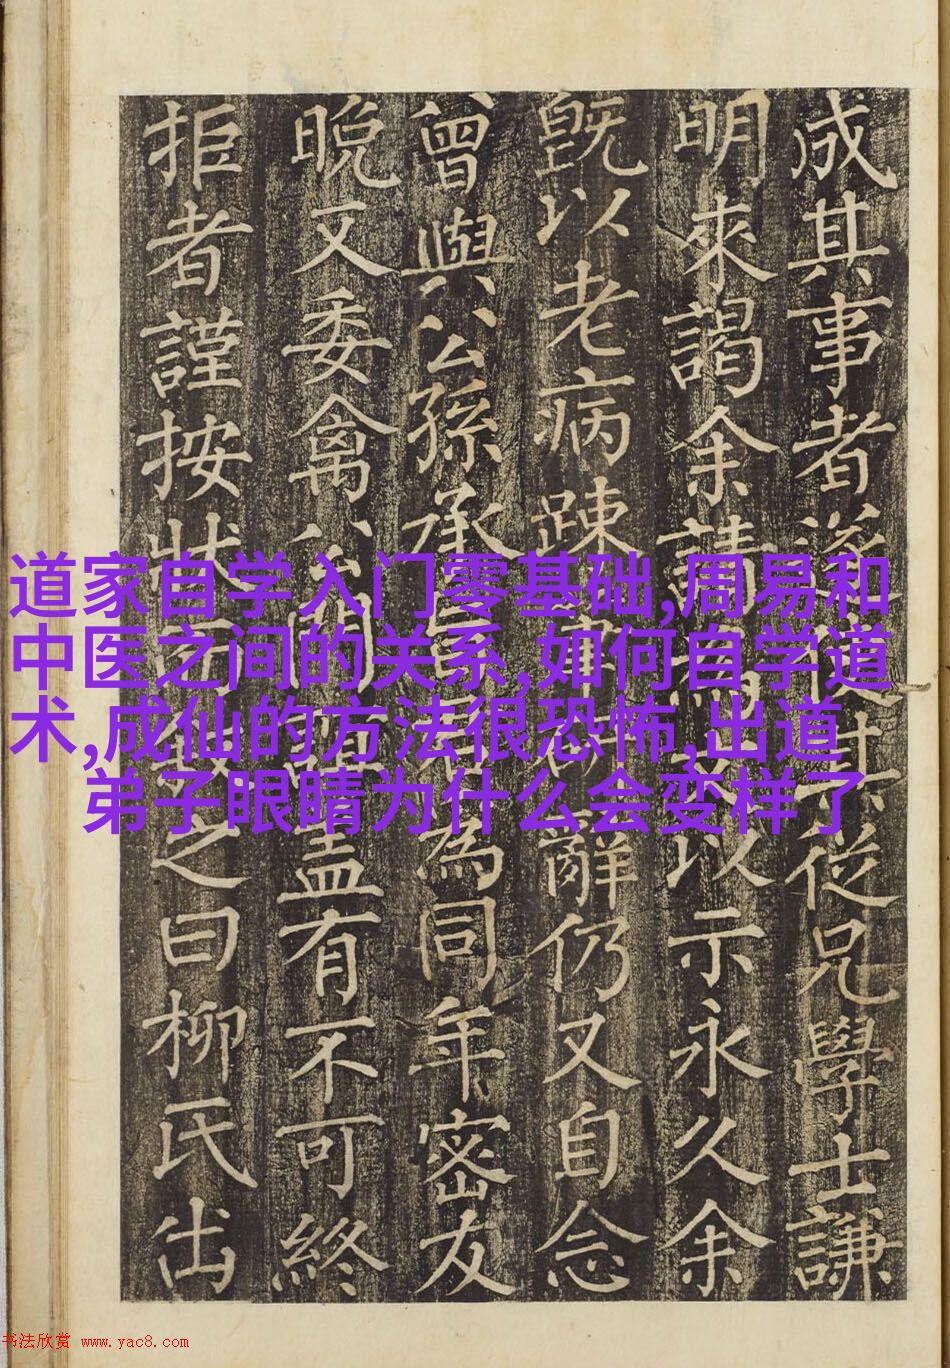 成其事者從兄學士謙
明來謁余請以示永久余
既以老病踈辭仍又自念
曾與公孫承為同年密友
晩又委禽公盖有不可終
拒者謹按狀之曰柳氏出
道家自学入门零基础,周易和
中医之间的关系,如何自学道
术,成仙的方法很恐怖,出道
弟子眼睛为什么会变样了
书法欣赏 www.yac8.com